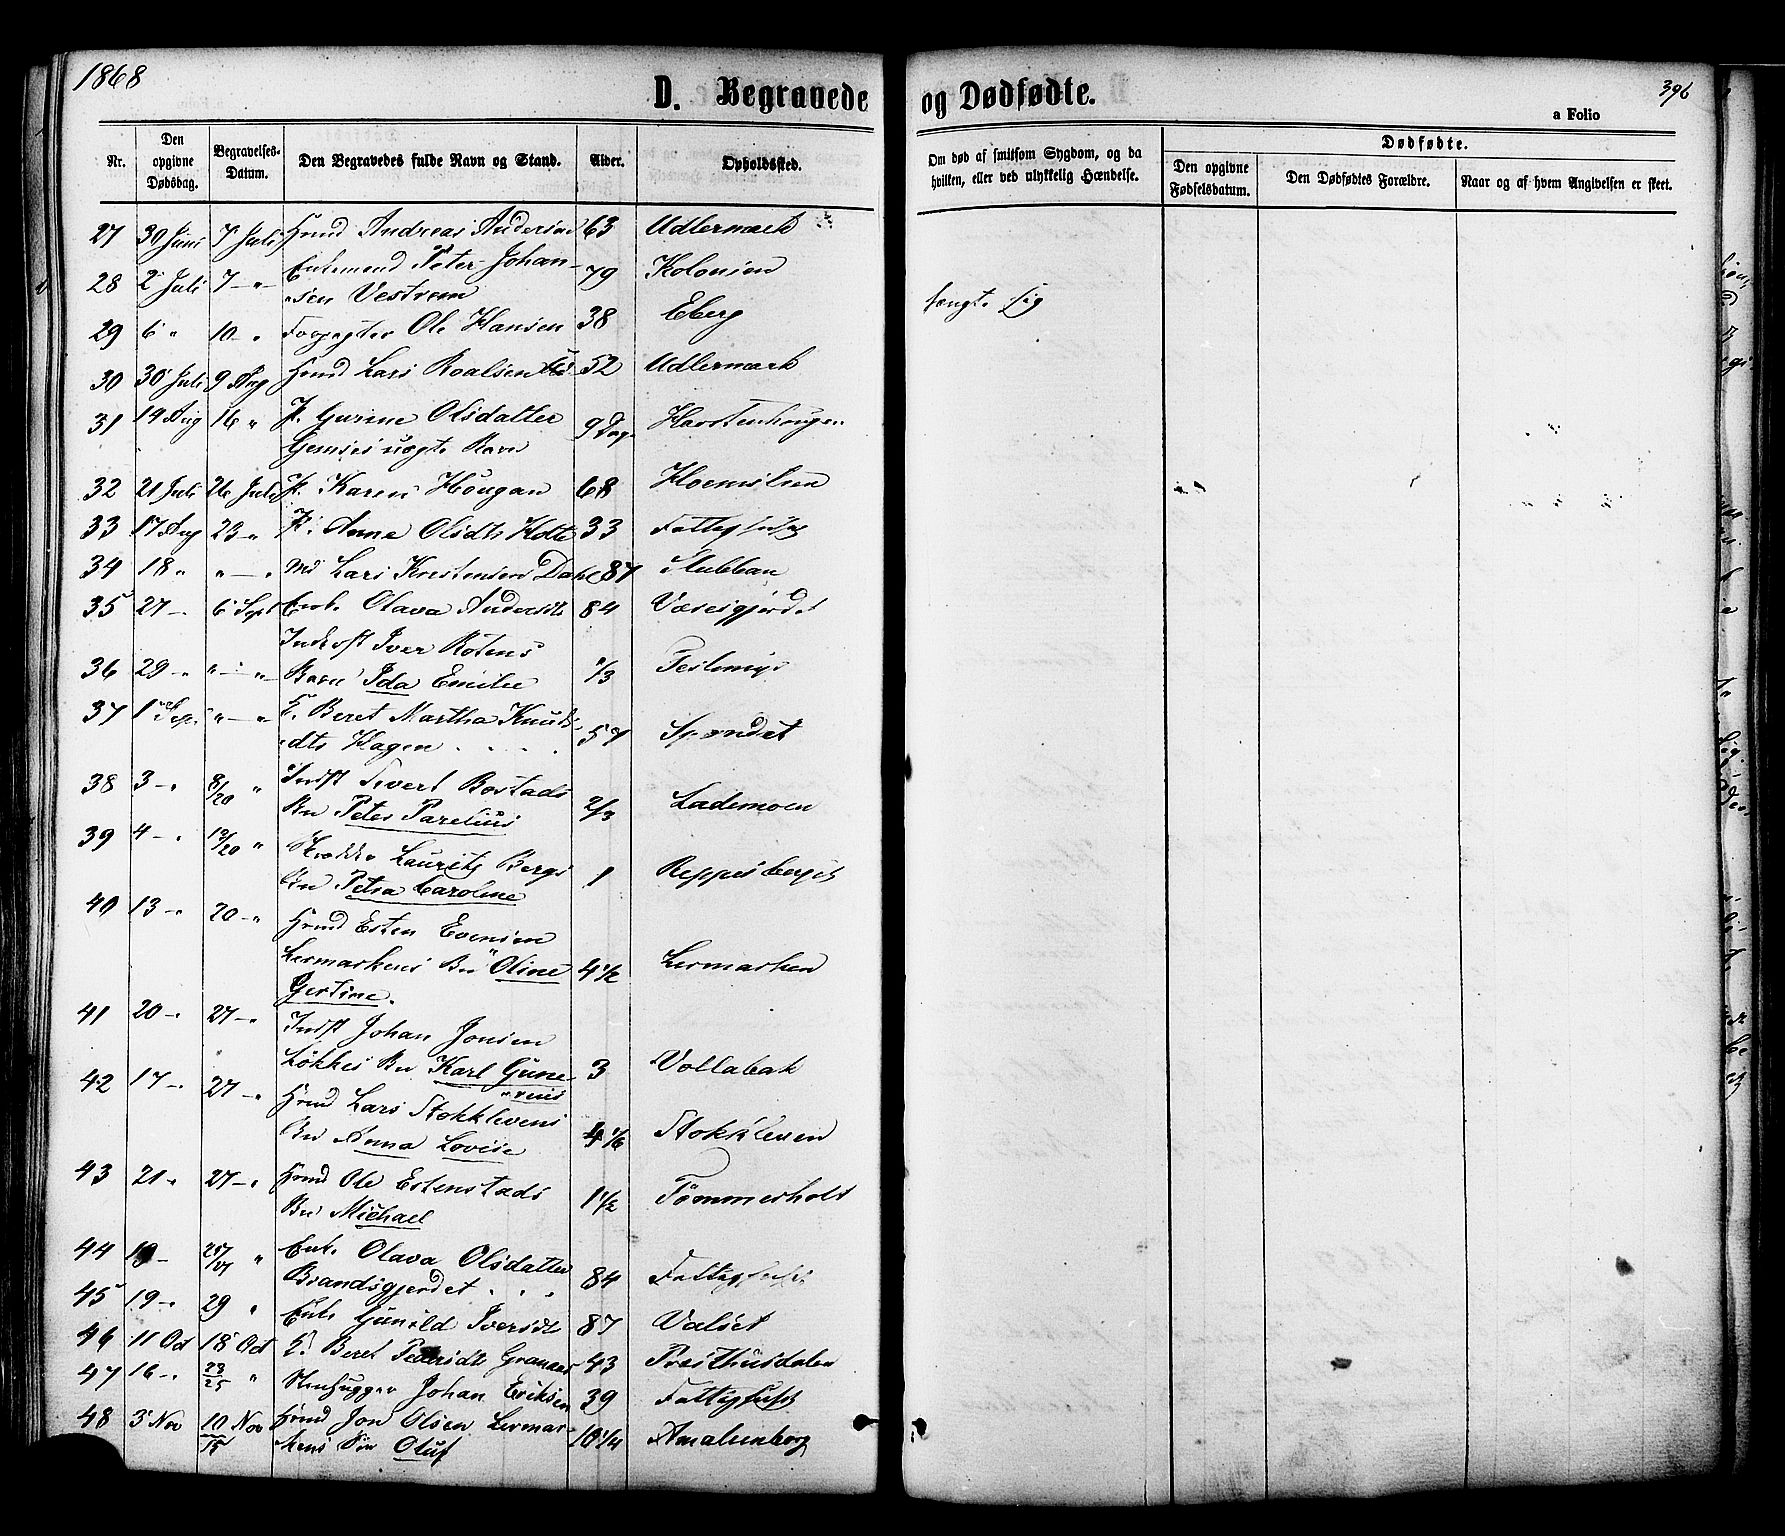 1868
D. Begravede og Dødfødte.
396
a Folio
Nr.
Den opgivne Dødsdag.
Begravelses-Datum.
Den Begravedes fulde Navn og Stand.
Alder.
Opholdssted.
Om død af smitsom Sygdom, og da hvilken, eller ved ulykkelig Hændelse.
Dødfødte.
Den opgivne Fødselsdatum.
Den Dødfødtes Forældre.
Naar og af hvem Angivelsen er skeet.
27 30 Juni 7 Juli Hmd Andreas Andersen 63 Udlermark
28 2 Juli 7 — " Enkemand Peter Johan-
sen Vestrom 79 Kolonien
29 6 " 10 — " Forpagter Ole Hansen 38 Eberg hengte sig
30 30 Juli 9 Aug Hmd Lars Roalsen 52 Udlermark
31 14 Aug 16 " P. Gurine Olsdatter
uægte Barn 9 Dage
32 21 Juli 26 Juli P. Karen Hougan 68
33 17 Aug 23 — " P. Anne Olsdtr Holte 33 Fattighuset
34 18 " " — " Lars Kristensen Dahl 87 Stubban
35 27 — 6 Sept Enke Olava Andersdtr 84
36 29 — " " — " Indkvst Iver Rotens
Barn Ida Emilie /3 Teslimyr
37 1 Sept " — " K. Beret Martha Knuds-
dtr Hagen . . . . 57
38 3 — " 8/20 " Indst Sivert Rostads
Bn Peter Parelius 2/3 Lademoen
39 4 — " 12/20 " Laurits Bergs
Bn Petra Caroline 1 Reppesberget
40 13 — " 20 — " Hmd Esten Evensen
Lermarkens Bn Oline 4 1/2 Lermarken
Gertine.
41 20 — " 27 — " Indst Johan Jonsen
Løkkes Bn Karl Gune- 3 Vollabak
rius
42 17 — " 27 — " Hmd Lars Stokklevens
Bn Anna Lovise 4 1/6 Stokkleven
43 21 " 27 — " Hmd Ole Estenstads
Bn Michael 1 1/2 Tømmerholt
44 — " Enke Olava Olsdatter
Brandsgjerdet . . . 84 Fattighuset
45 19 — " 29 " Enke Gunild Iversdtr 87 Valset
46 11 Oct 18 Oct K. Beret Pedersdtr 43 Præsthusdalen
47 16 — " 23/25 " Stenhugger Johan Eriksen 39 Fattighuset
48 3 Nov 10/15 Nov Hmd Jon Olsen Lermar-
kens Søn Oluf 10 1/4 Amalienborg